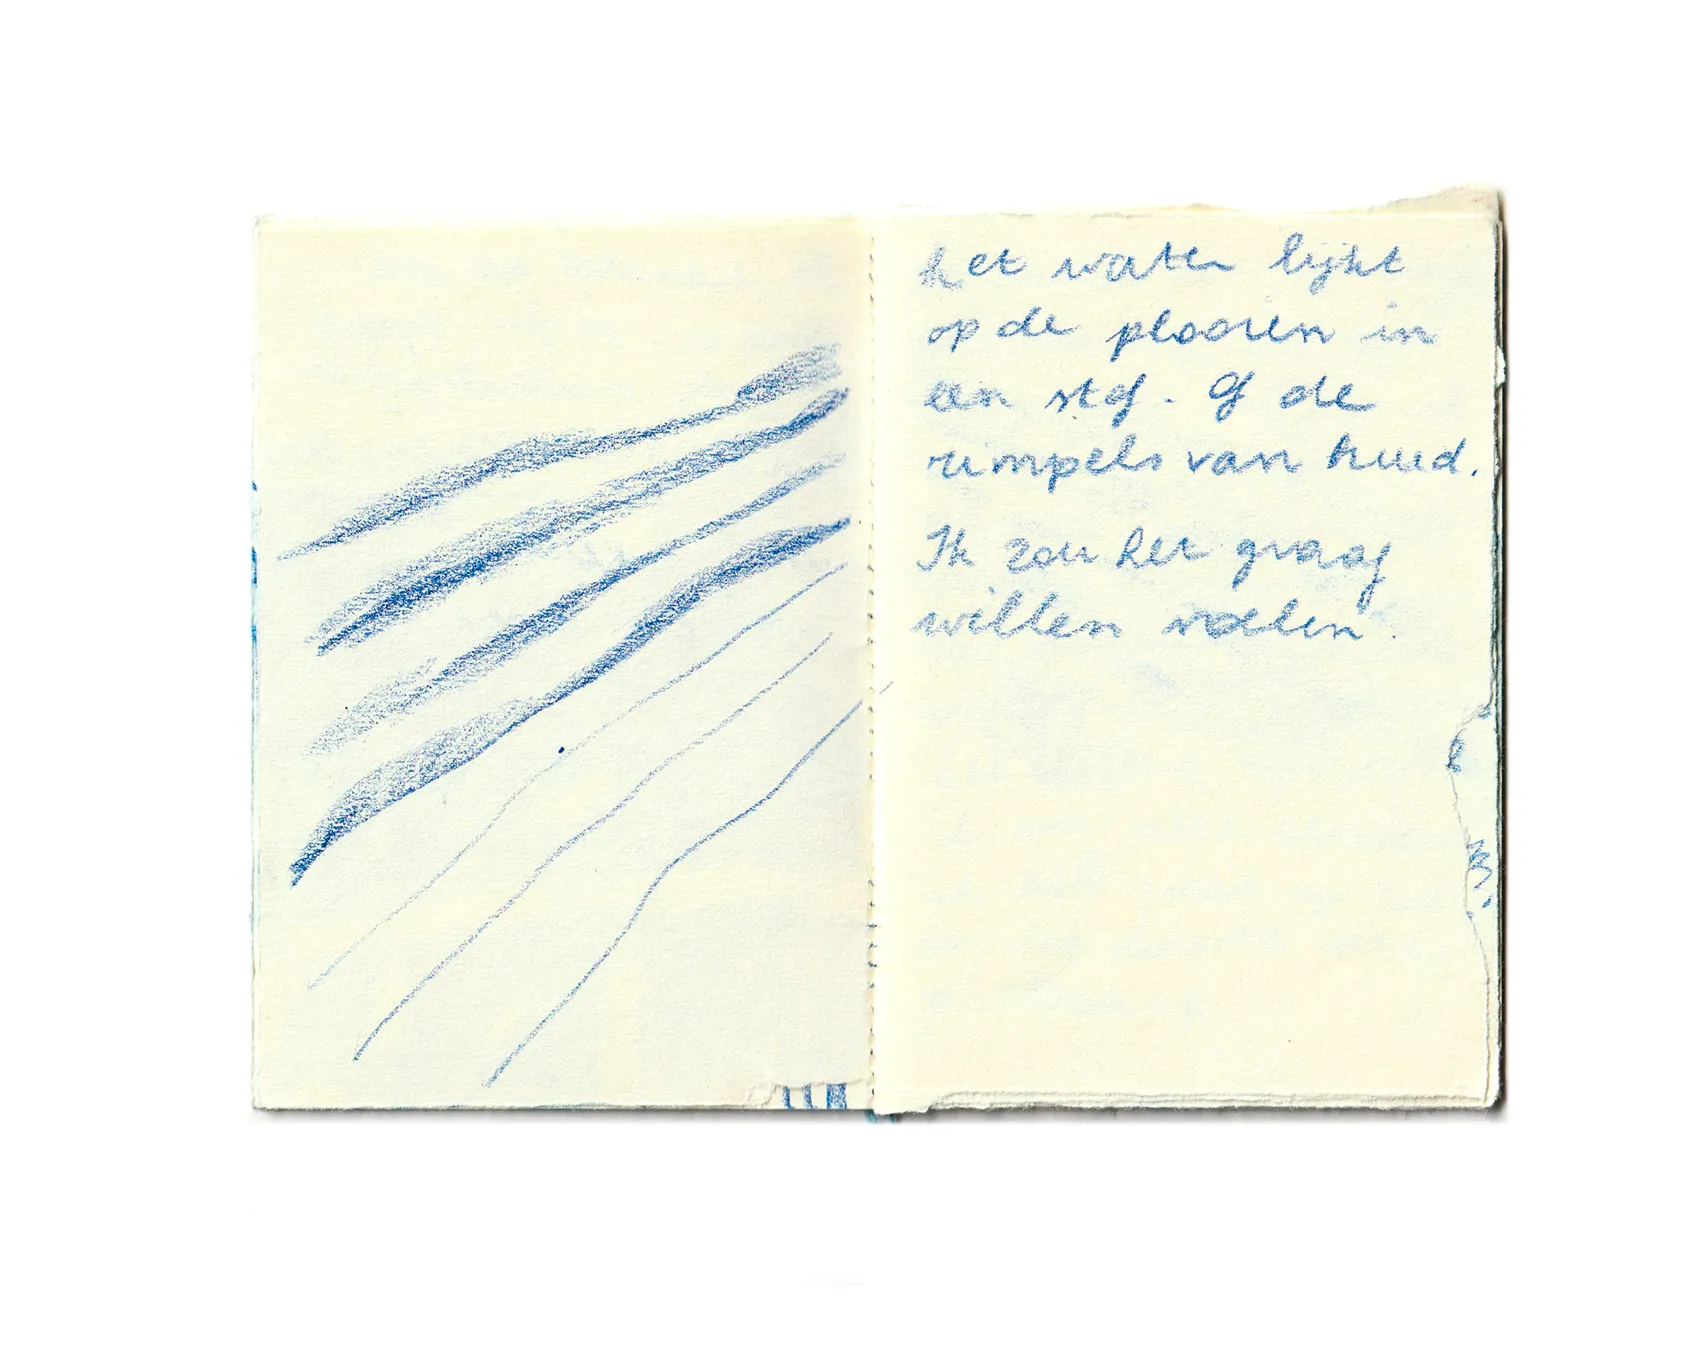 het water lijkt
op de plooien in
een stof. Of de
rimpels van huid.
Ik zou het graag
willen voelen.